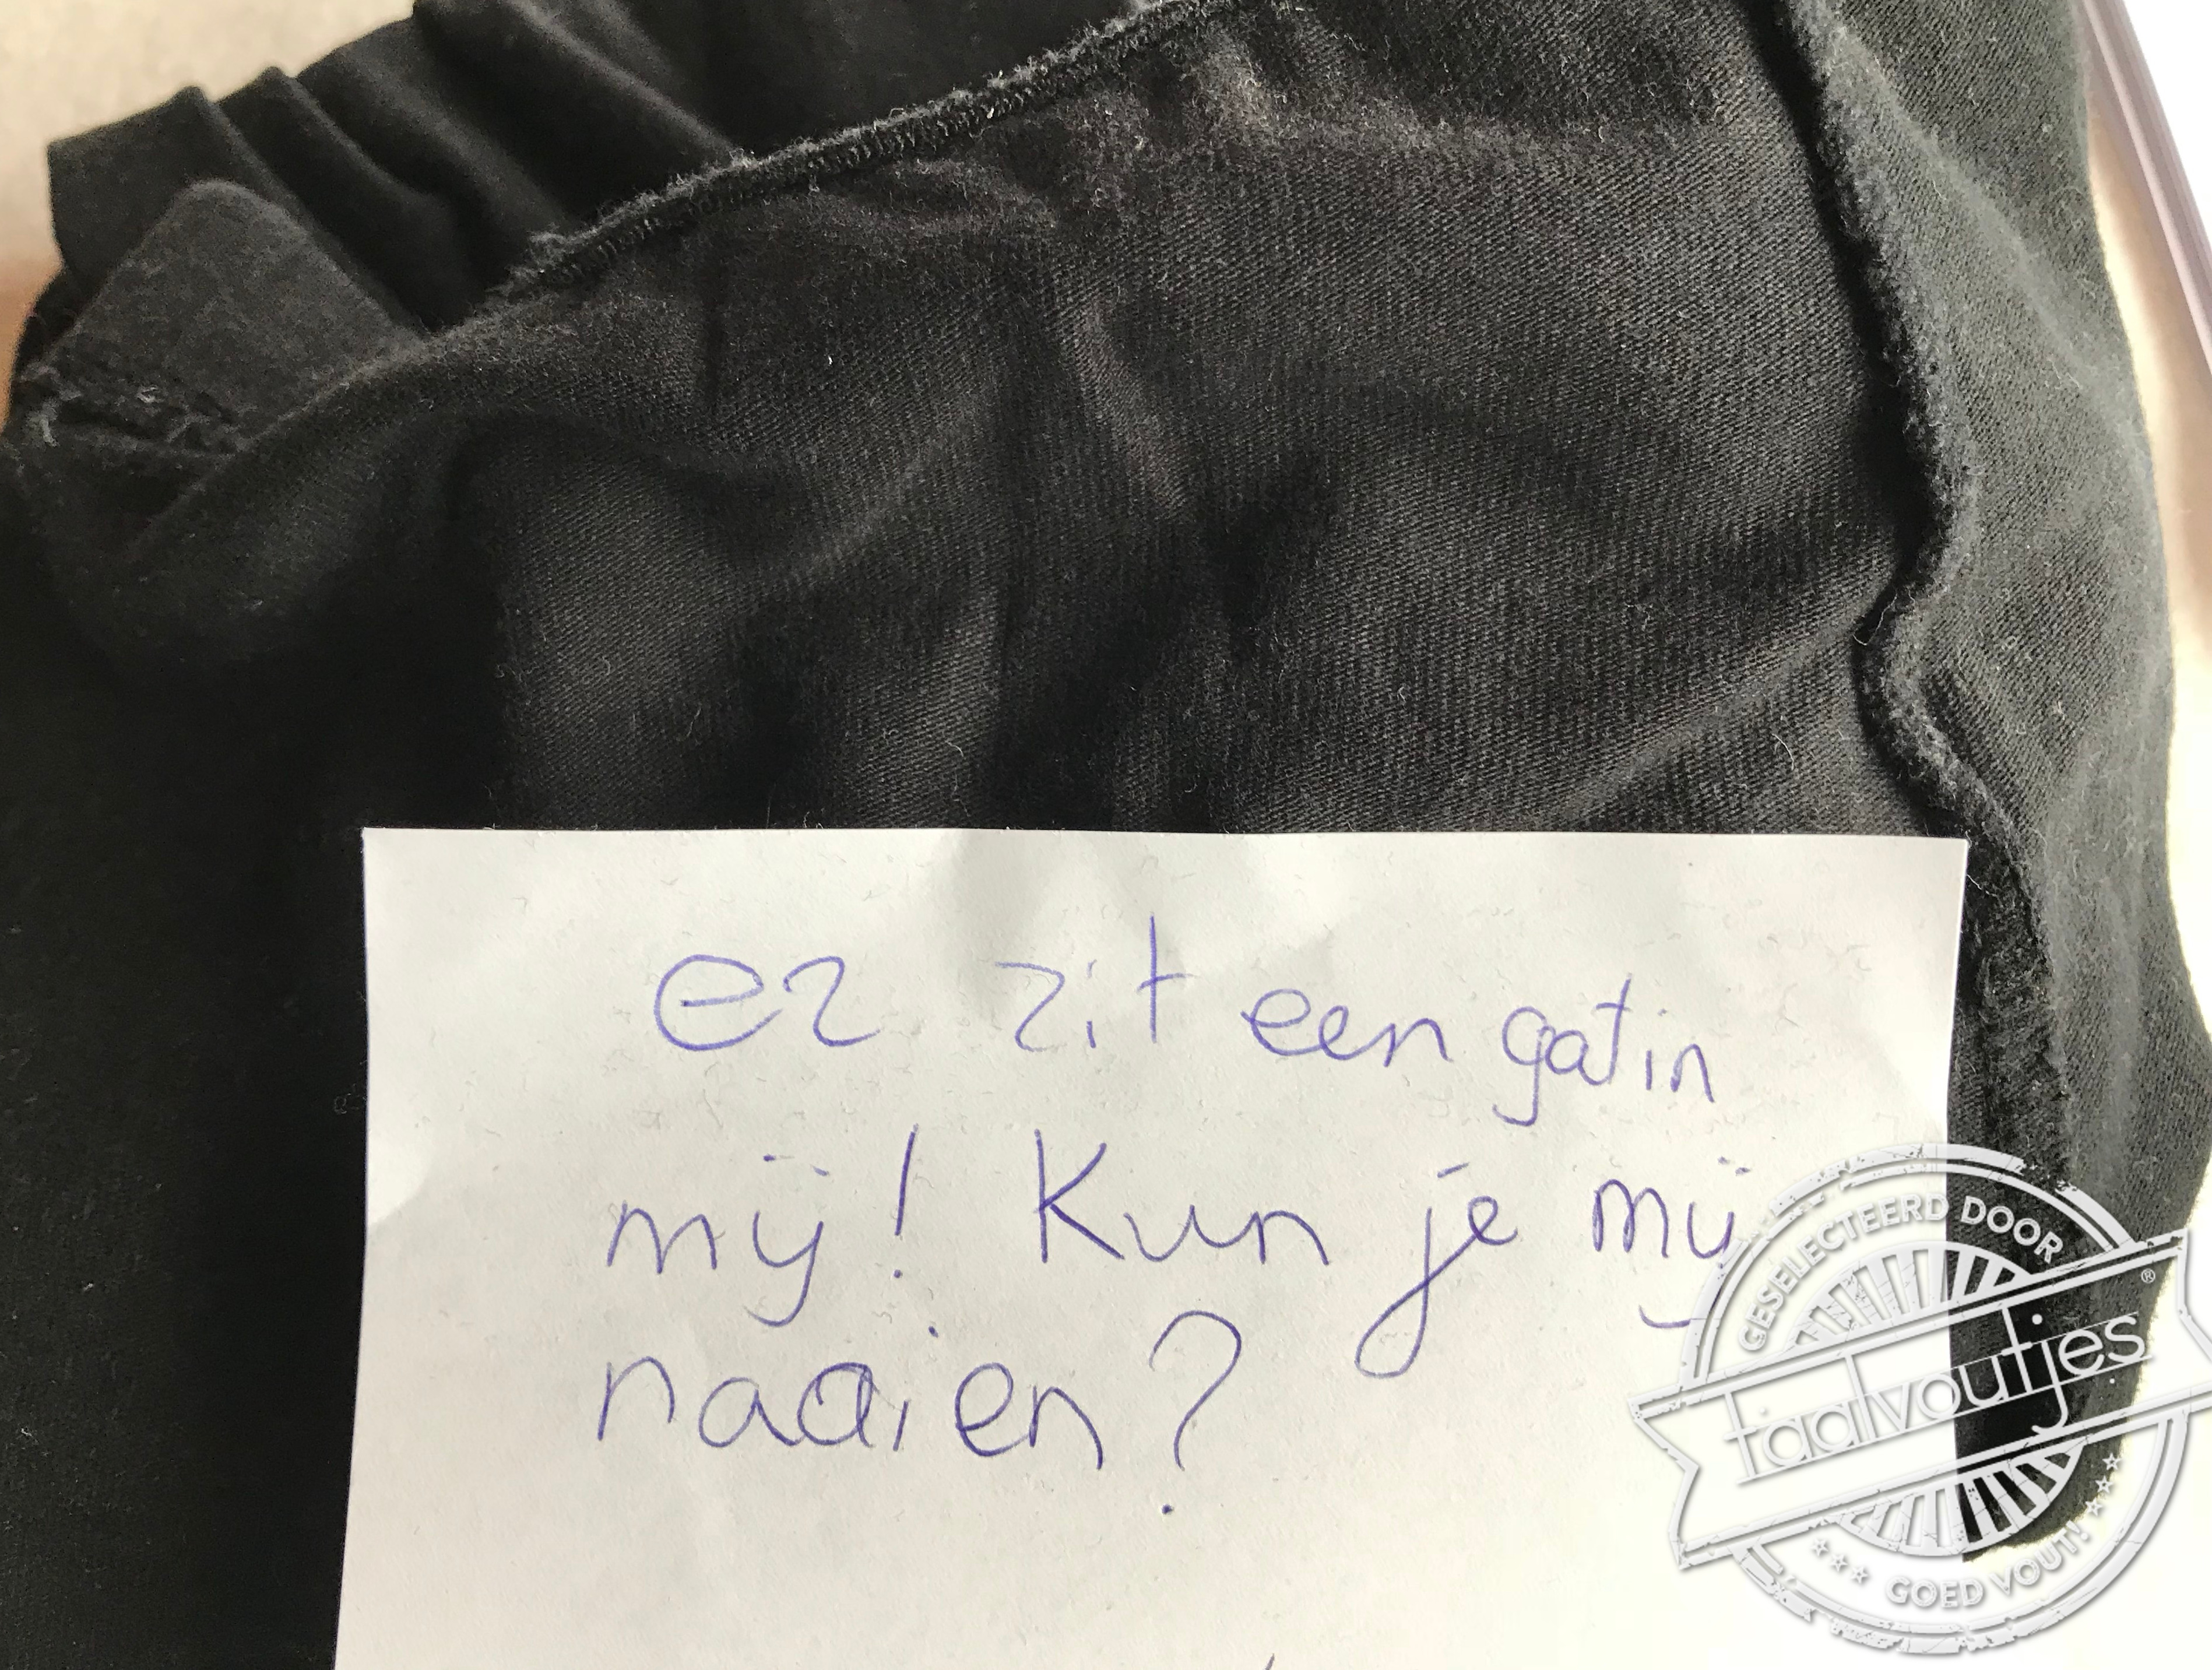 er zit een gat in
mij! Kun je mij
naaien?
GESELECTEERD DOOR
taalvoutjes®
GOED VOUT!